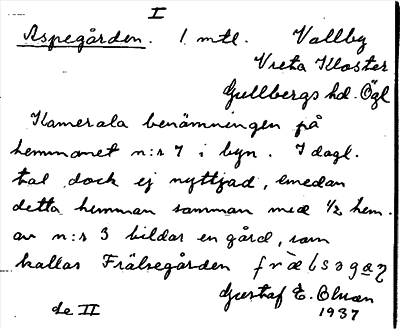 I
Aspegården. 1 mtl. Vallby
Vreta Kloster
Gullbergs hd. Ögl
Kamerala benämningen på
hemmanet n:r 7 i byn. I dagl.
tal dock ej nyttjad, emedan
detta hemman samman med 1/2 hem.
av n:r 3 bildar en gård, som
kallas Frälsegården
Gustaf E. Olsson
de II 1937